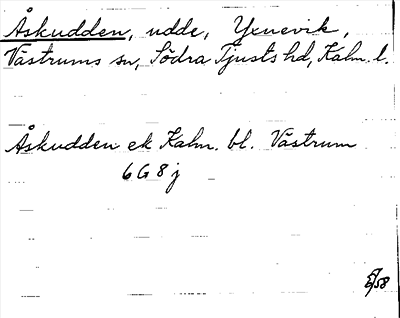 Åskudden, udde, Yxnevik,
Västrums sn, Södra Tjusts hd, Kalm. l.
Åskudden ek Kalm. bl. Västrum
6 G 8 j